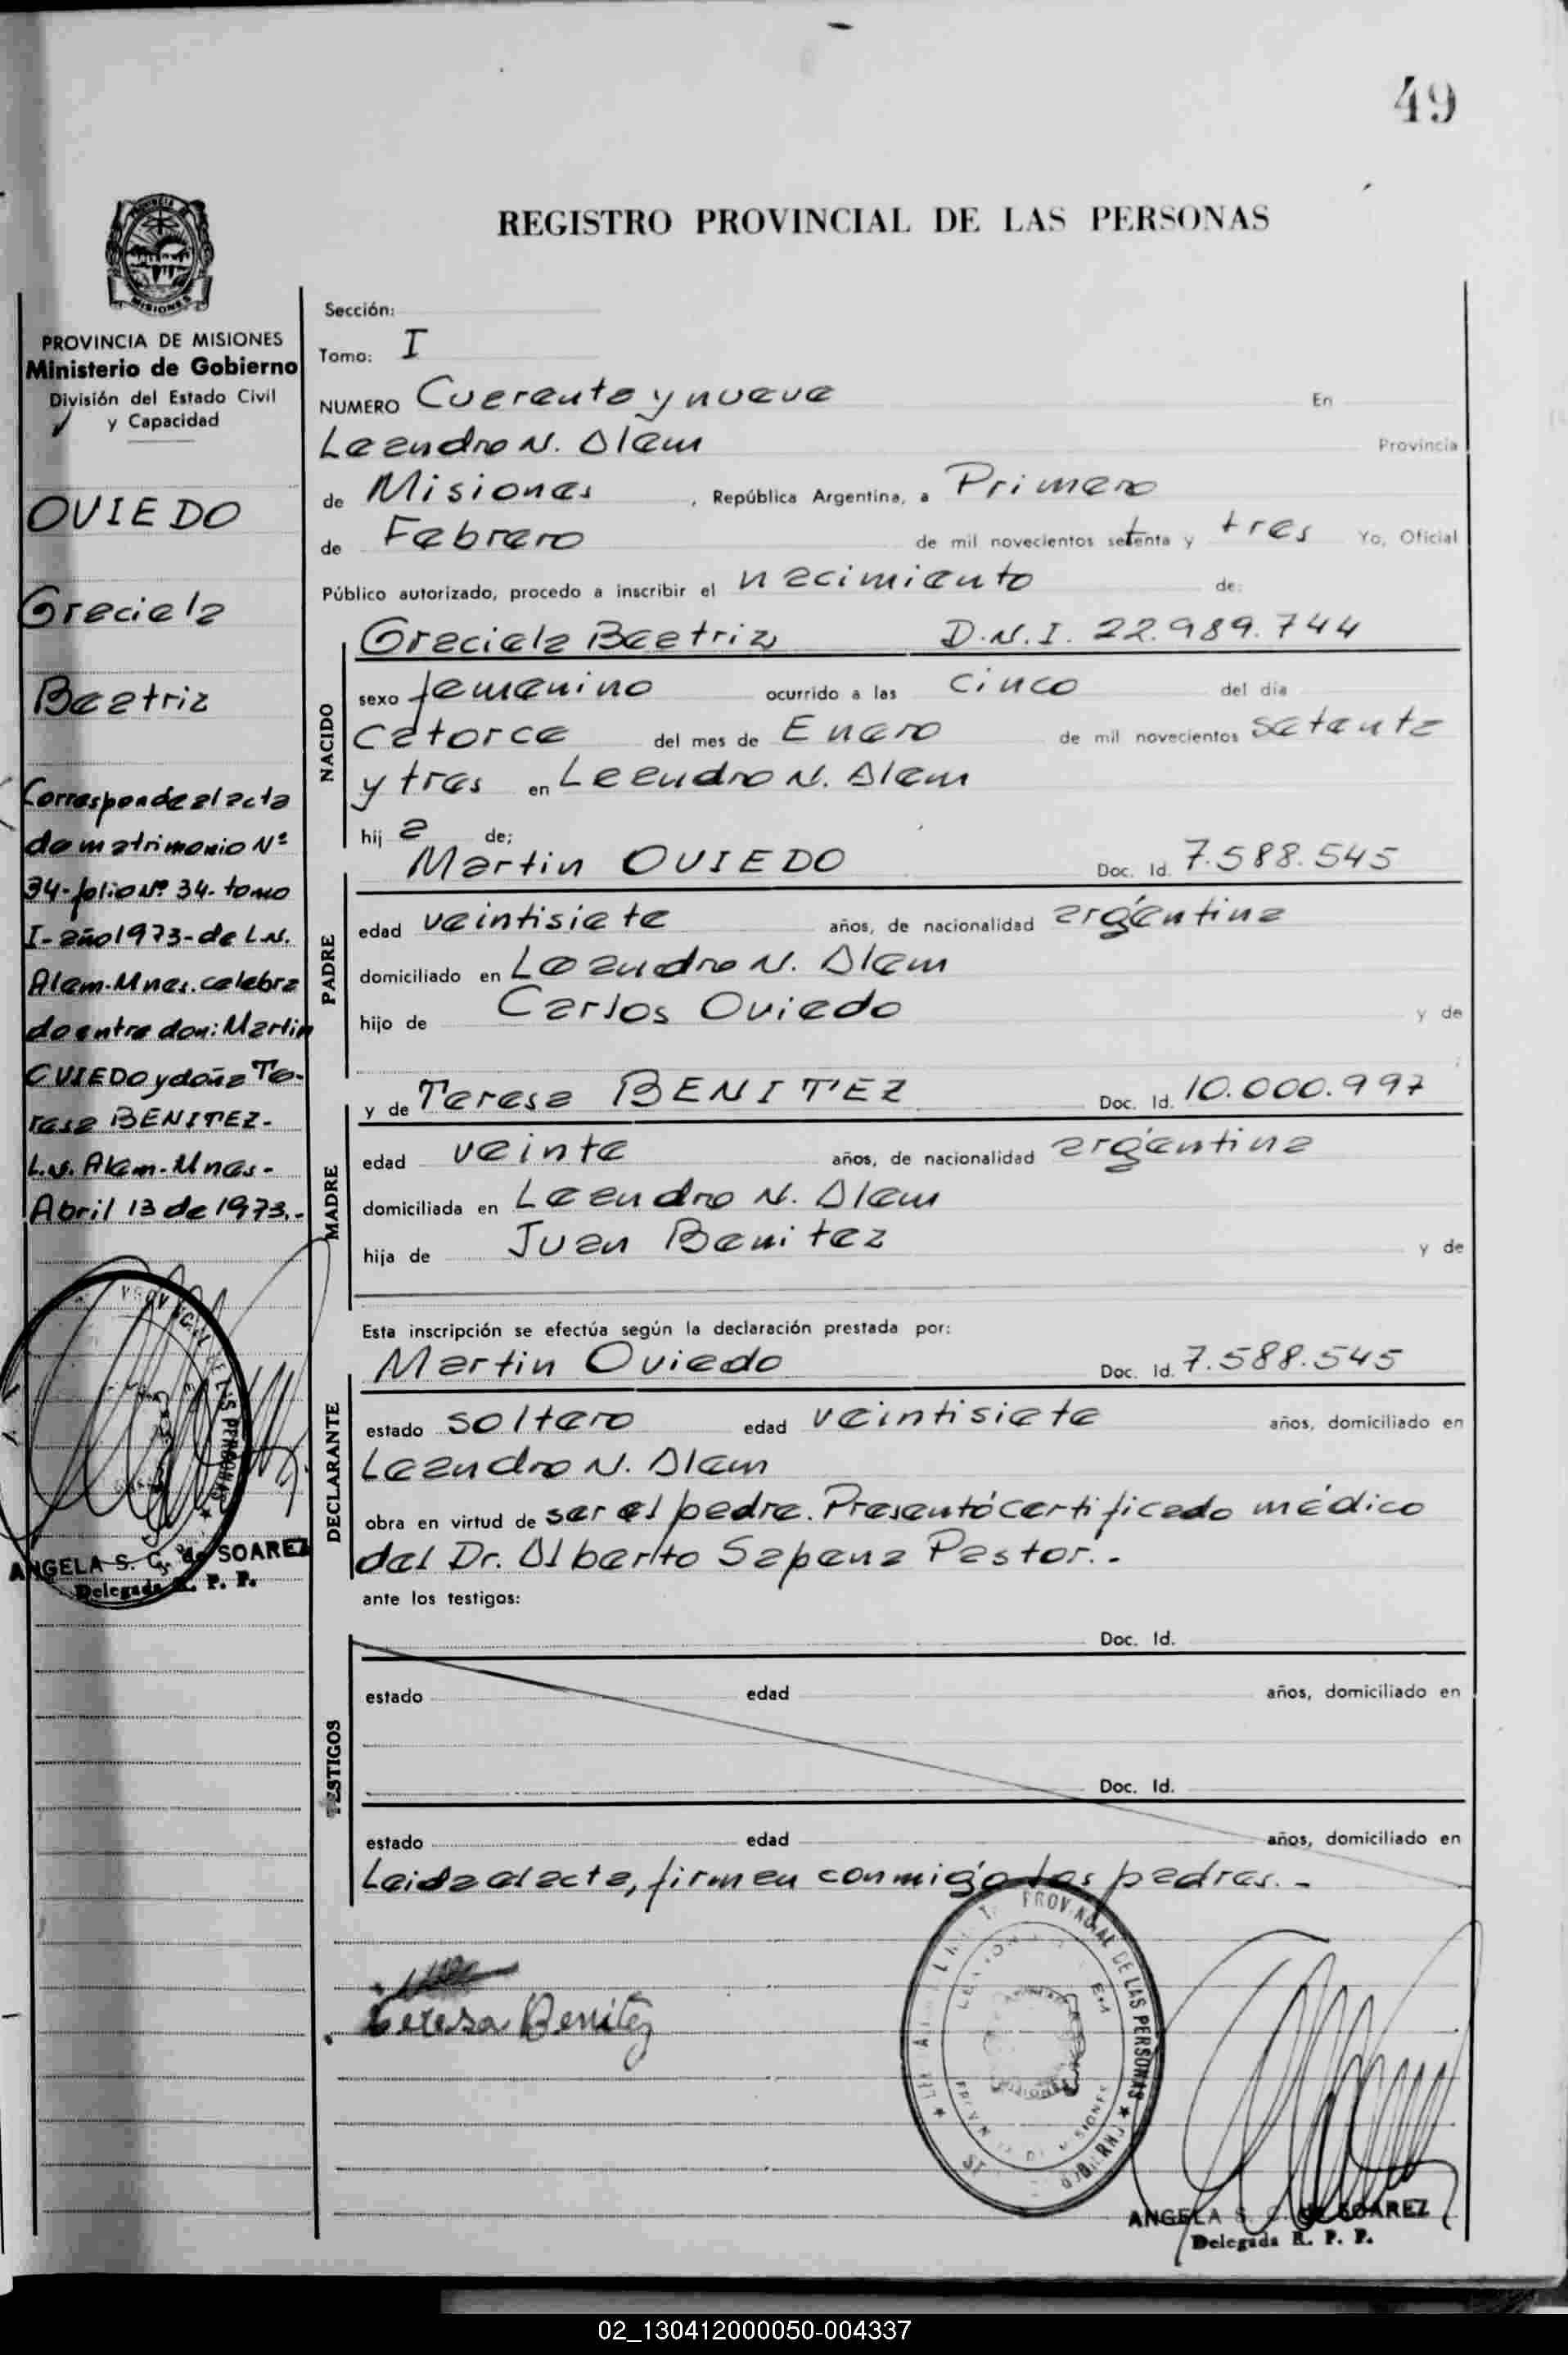 49
REGISTRO PROVINCIAL DE LAS PERSONAS
PROVINCIA DE MISIONES
Ministerio de Gobierno
División del Estado Civil
y Capacidad
OVIEDO
Graciela
Beatriz
Corresponde al acta
de matrimonio Nº
34-folio Nº 34- tomo
I- año 1973- de L.N.
Alem- Mnes. celebra
do entre don: Martin
OVIEDO y doña Te-
resa BENITEZ-
L.N. Alem- Mnes-
Abril 13 de 1973.-
ANGELA S. C. de SOAREZ
Delegada R. P. P.
Sección:
Tomo: I
NUMERO Cuarenta y nueve En
Leandro N. Alem Provincia
de Misiones , República Argentina, a Primero
de Febrero de mil novecientos setenta y tres Yo, Oficial
Público autorizado, procedo a inscribir el nacimiento de:
NACIDO
Graciela Beatriz D.N.I. 22.989.744
sexo femenino ocurrido a las cinco del día
catorce del mes de Enero de mil novecientos setenta
y tres en Leandro N. Alem
hij a de:
PADRE
Martin OVIEDO Doc. Id. 7.588.545
edad veintisiete años, de nacionalidad argentina
domiciliado en Leandro N. Alem
hijo de Carlos Oviedo y de
MADRE
y de Teresa BENITEZ Doc. Id. 10.000.997
edad veinte años, de nacionalidad argentina
domiciliada en Leandro N. Alem
hija de Juan Benitez y de
Esta inscripción se efectúa según la declaración prestada por:
DECLARANTE
Martin Oviedo Doc. Id. 7.588.545
estado soltero edad veintisiete años, domiciliado en
Leandro N. Alem
obra en virtud de ser el padre. Presentó certificado médico
del Dr. Alberto Sapena Pastor.-
ante los testigos:
TESTIGOS
Doc. Id.
estado edad años, domiciliado en
Doc. Id.
estado edad años, domiciliado en
Leida el acta, firman conmigo los padres.-
Teresa Benitez
PROVINCIAL DE LAS PERSONAS
ANGELA S. C. de SOAREZ
Delegada R. P. P.
02_130412000050-004337